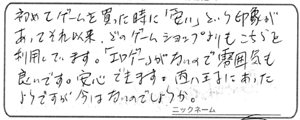 初めてゲームを買った時に「安い」という印象が
あってそれ以来、どのゲームショップよりもこちらを
利用しています。「エロゲー」がないので雰囲気も
良いです。安心できます。西八王子にあった
ようですが今はないのでしょうか。
ニックネーム